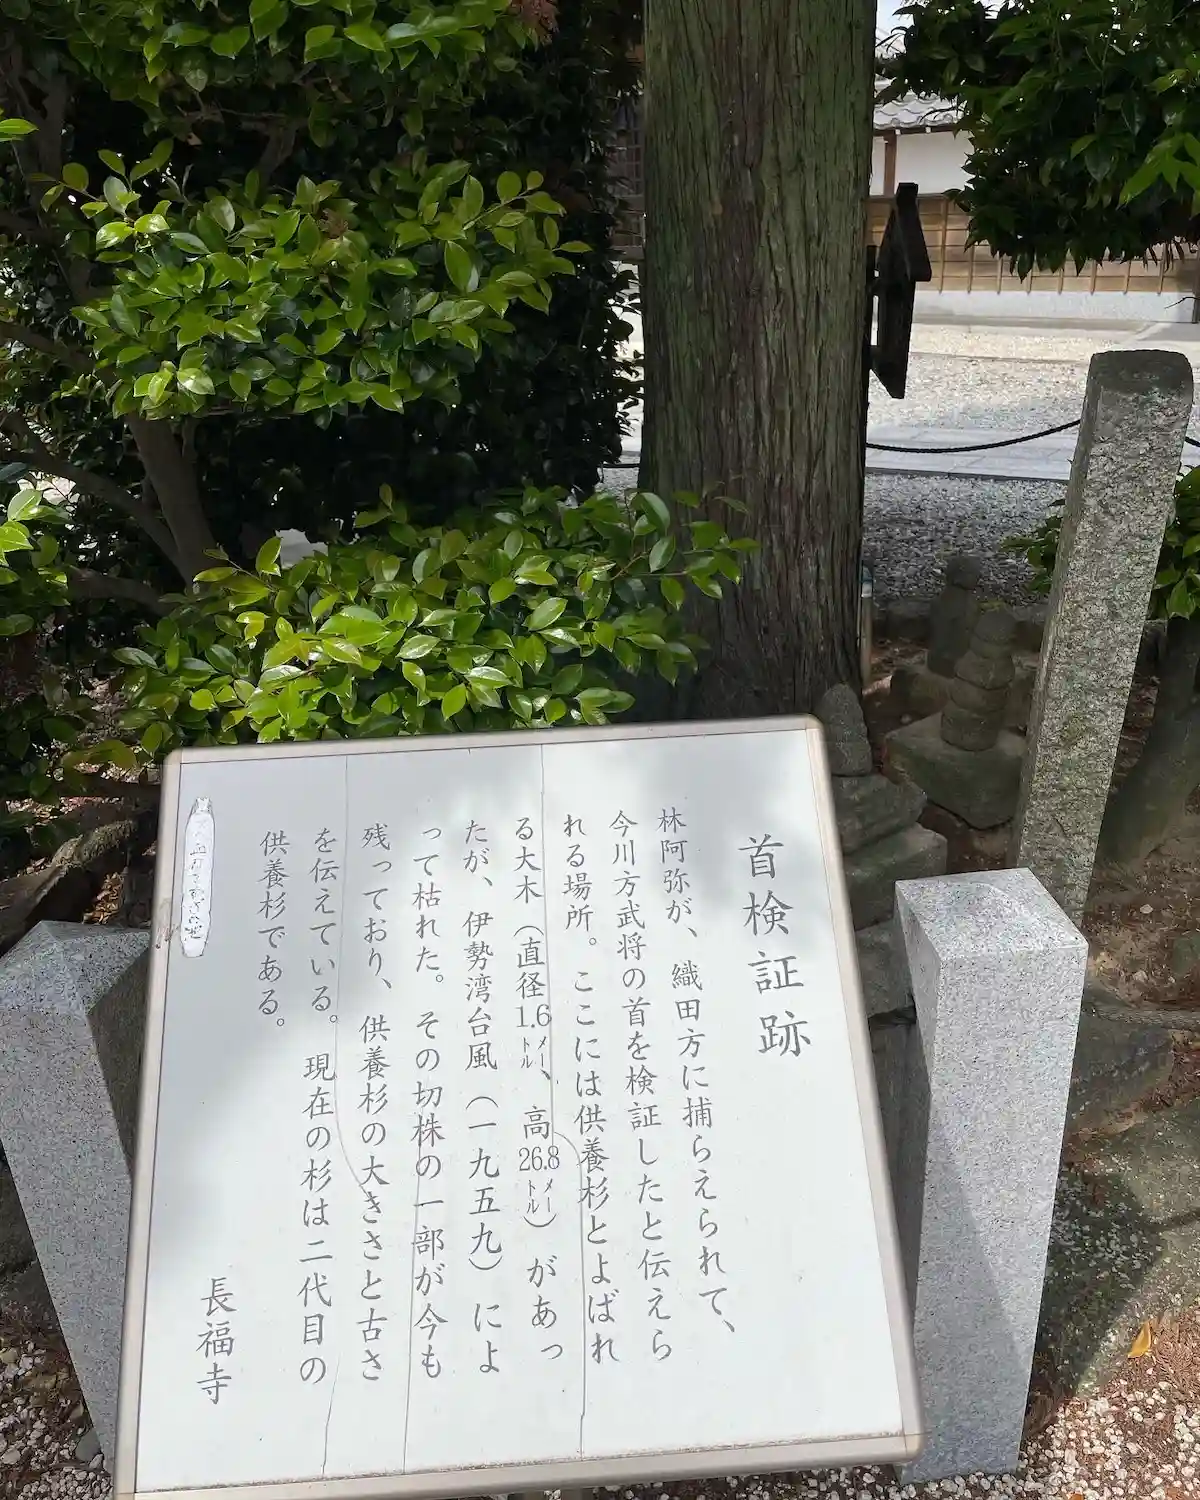 首検証跡
林阿弥が、織田方に捕らえられて、
今川方武将の首を検証したと伝えら
れる場所。ここには供養杉とよばれ
る大木（直径1.6メートル、高26.8メートル）があっ
たが、伊勢湾台風（一九五九）によ
って枯れた。その切株の一部が今も
残っており、供養杉の大きさと古さ
を伝えている。現在の杉は二代目の
供養杉である。
長福寺